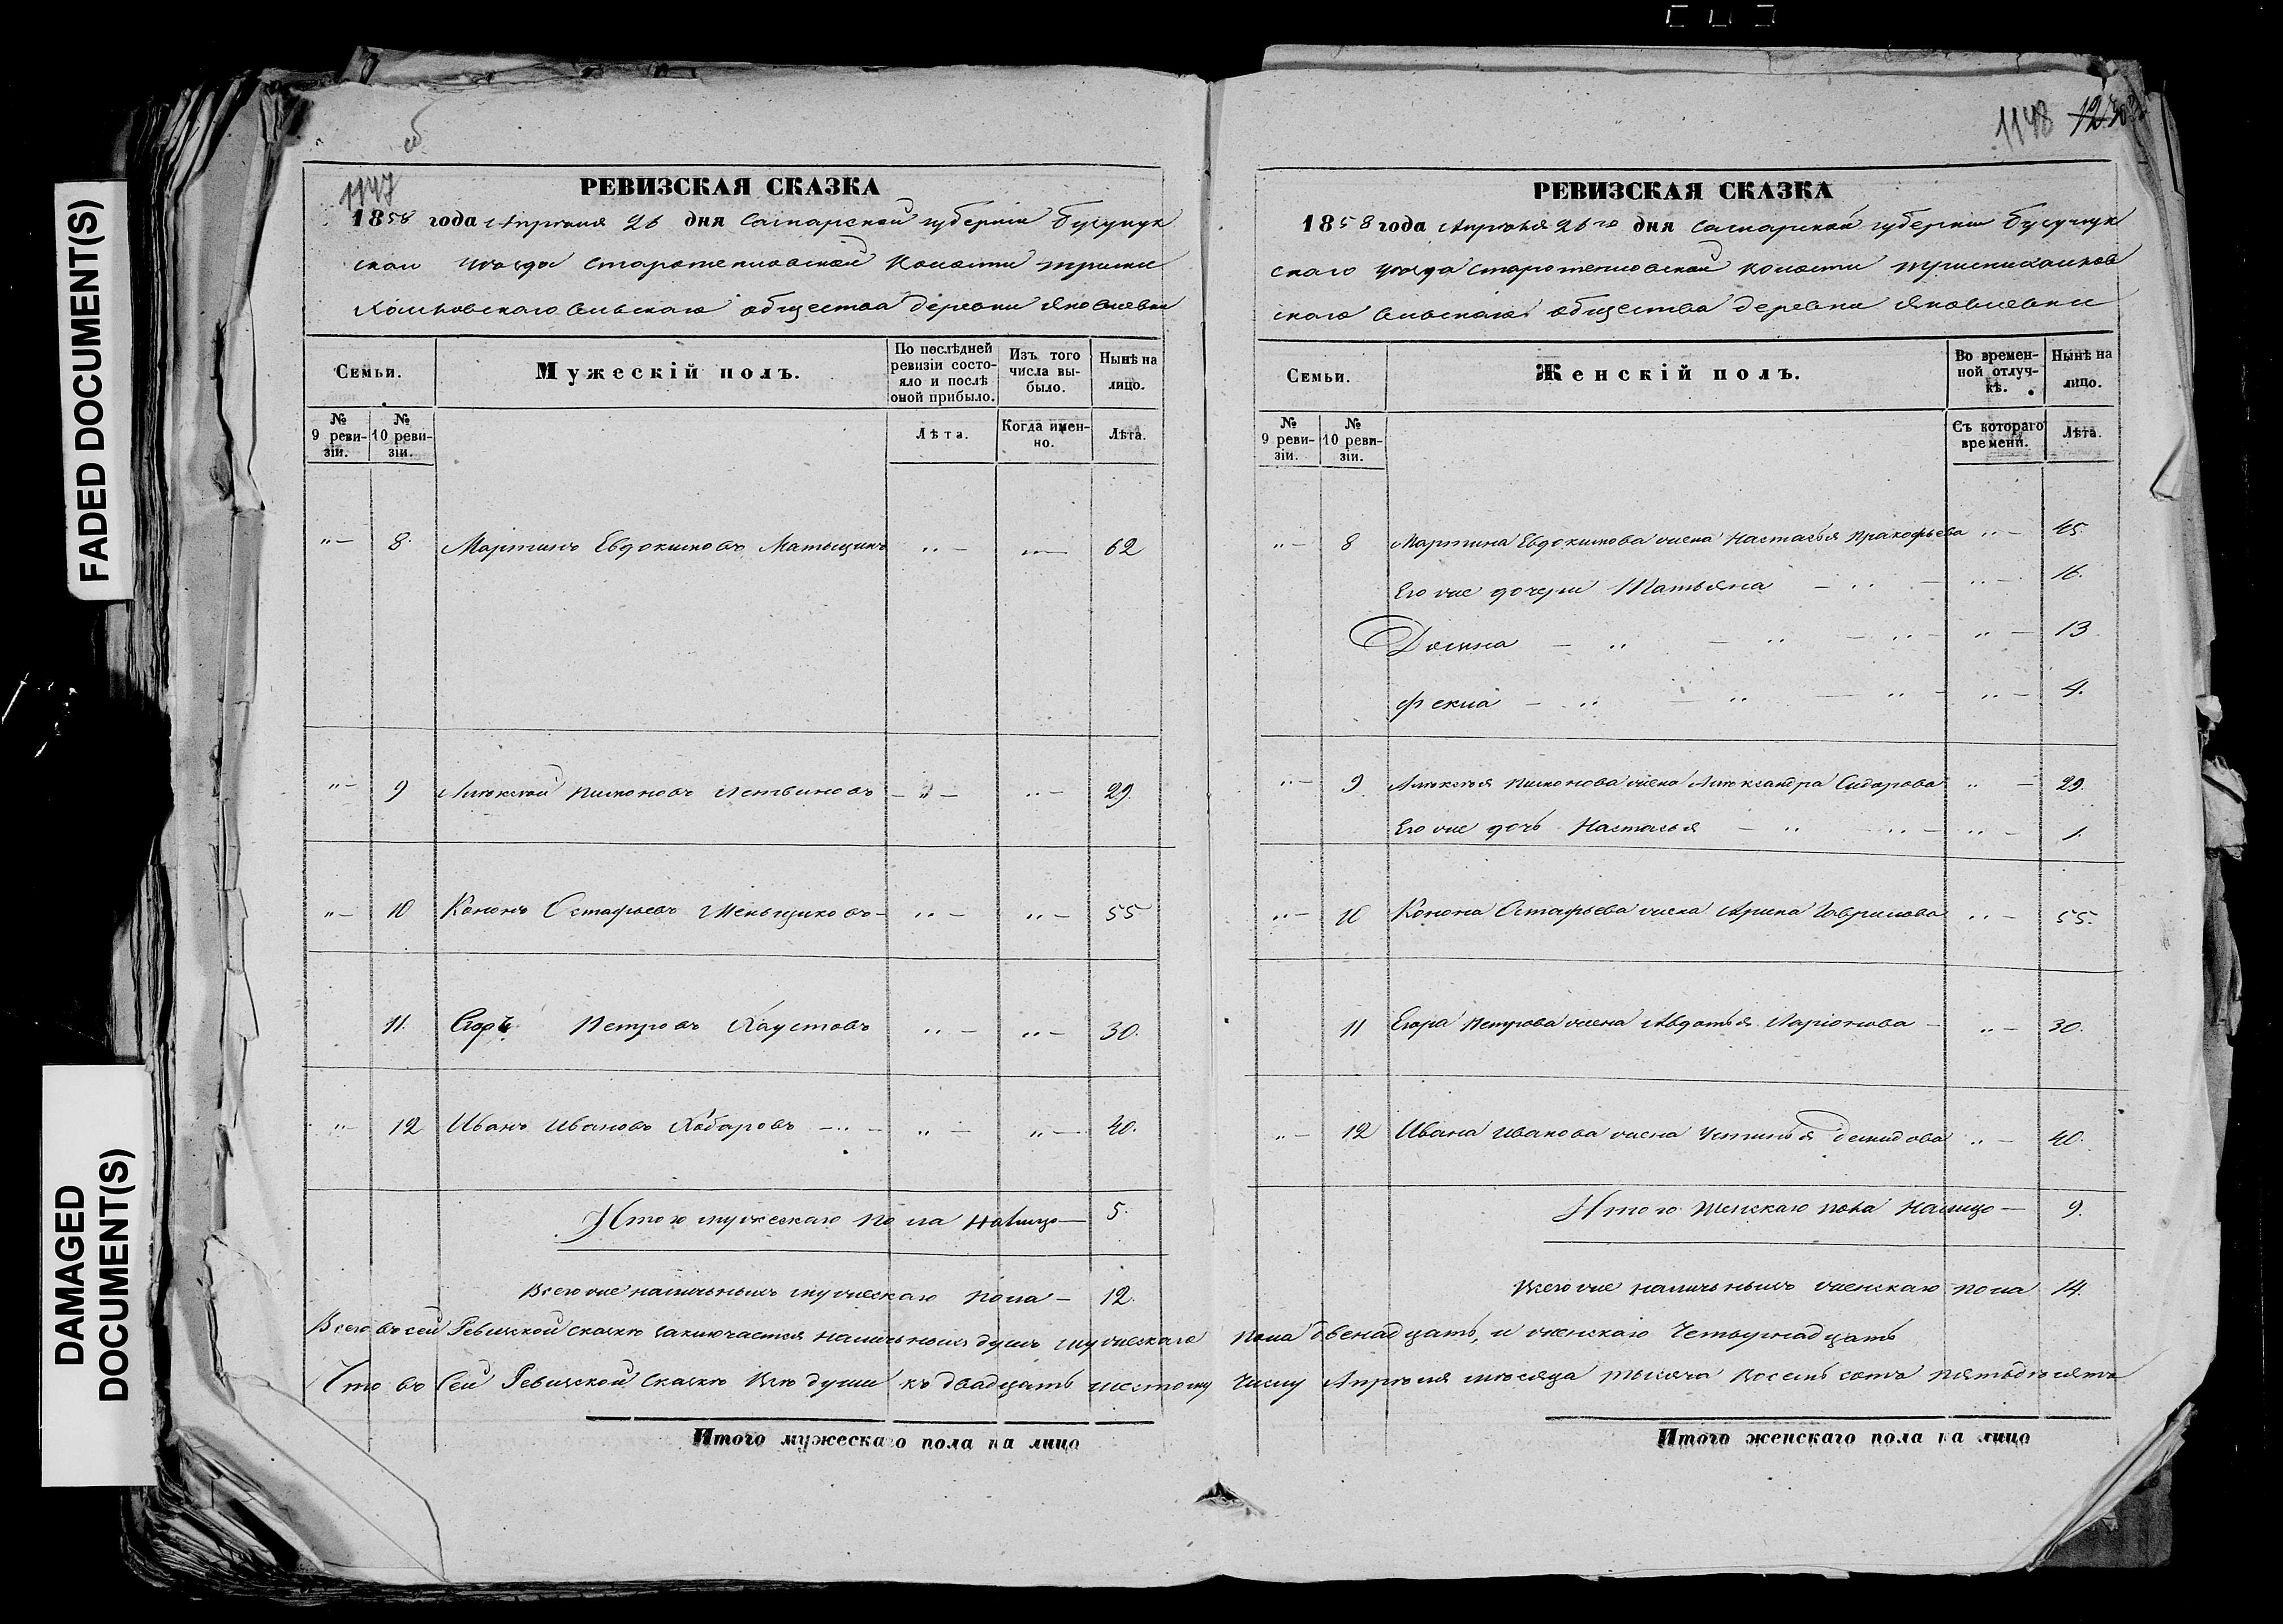 FADED DOCUMENT(S)
DAMAGED
DOCUMENT(S)
1147
РЕВИЗСКАЯ СКАЗКА
1858 года Апреля 26 дня Самарской губернiи Бузулук
скаго уѣзда волости
сельскаго общества деревни Яковлевки
Семьи.
Мужескій полъ.
По послѣдней ревизіи состояло и послѣ оной прибыло.
Изъ того числа выбыло.
Нынѣ на лицо.
№ 9 ревизіи.
№ 10 ревизіи.
Лѣта.
Когда именно.
Лѣта.
8. Мартинъ Евдокимовъ 62
9 Алексѣй Литвиновъ 29.
10 Кононъ Остафьевъ Меньщиковъ 55
11. Егоръ Петровъ Хаустовъ 30.
12 Иванъ Ивановъ Хабаровъ 40.
Итого мужескаго пола налицо 5.
Всего же наличныхъ мужескаго пола 12.
Всего въ сей Ревизской сказкѣ заключается наличныхъ душъ мужескаго
Что въ сей Ревизской сказкѣ все души къ двадцать шестому
Итого мужескаго пола на лицо
1148 1230
РЕВИЗСКАЯ СКАЗКА
1858 года Апрѣля 26го дня Самарской губернiи Бузулук
скаго уѣзда волости
скаго сельскаго общества деревни Яковлевки
Семьи.
Женскій полъ.
Во временной отлучкѣ.
Нынѣ на лицо.
№ 9 ревизіи.
№ 10 ревизіи.
Съ котораго времени.
Лѣта.
8 Мартина Евдокимова жена Настасья Пракофьева 45.
Его же дочери Татьяна 16.
Домна 13
Фекла 4.
9 Алексѣя жена Александра Сидарова 29.
Его же дочь Настасья 1.
10 Конона Остафьева жена Арина Гаврилова 55.
11 Егора Петрова жена Авдотья Ларіонова 30.
12 Ивана Иванова жена Устинья Демидова 40.
Итого женскаго пола налицо 9.
Всего же наличныхъ женскаго пола 14.
пола двенадцать, и женскаго Четырнадцать
числу Апрѣля мѣсяца тысяча восемь сотъ пятьдесятъ
Итого женскаго пола на лицо